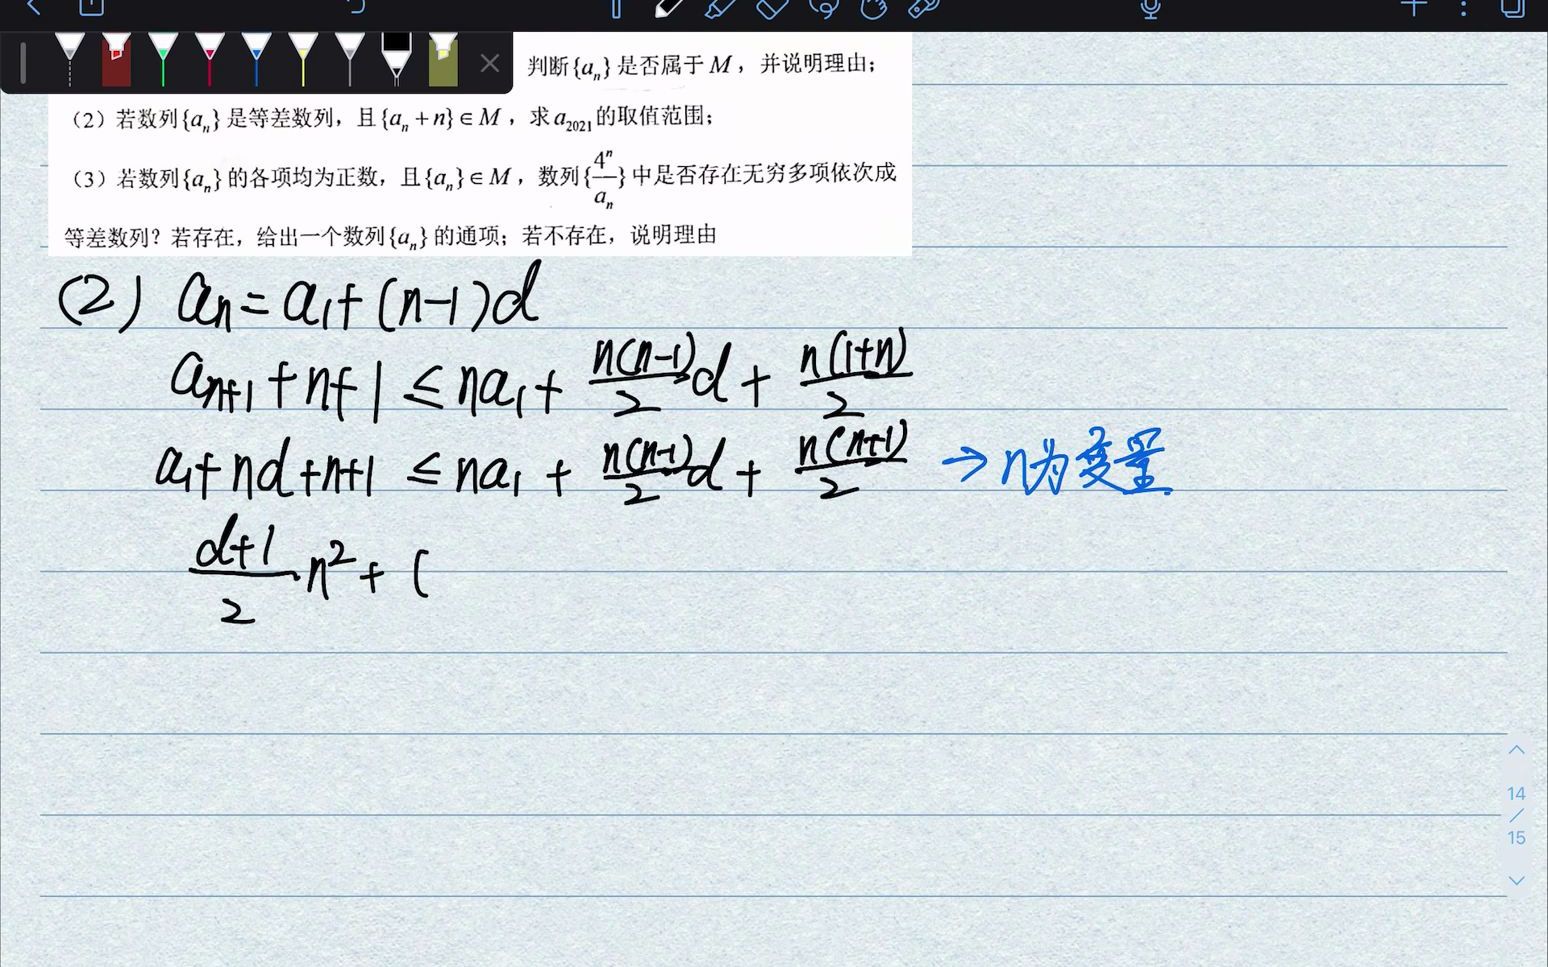 判断{a_n}是否属于M，并说明理由；
（2）若数列{a_n}是等差数列，且{a_n+n}∈M，求a_2021的取值范围；
（3）若数列{a_n}的各项均为正数，且{a_n}∈M，数列{4^n/a_n}中是否存在无穷多项依次成
等差数列？若存在，给出一个数列{a_n}的通项；若不存在，说明理由
(2) a_n=a_1+(n-1)d
a_{n+1}+n+1≤na_1+n(n-1)/2 d+n(1+n)/2
a_1+nd+n+1≤na_1+n(n-1)/2 d+n(n+1)/2 →n为变量
(d+1)/2 n²+(
14
/
15